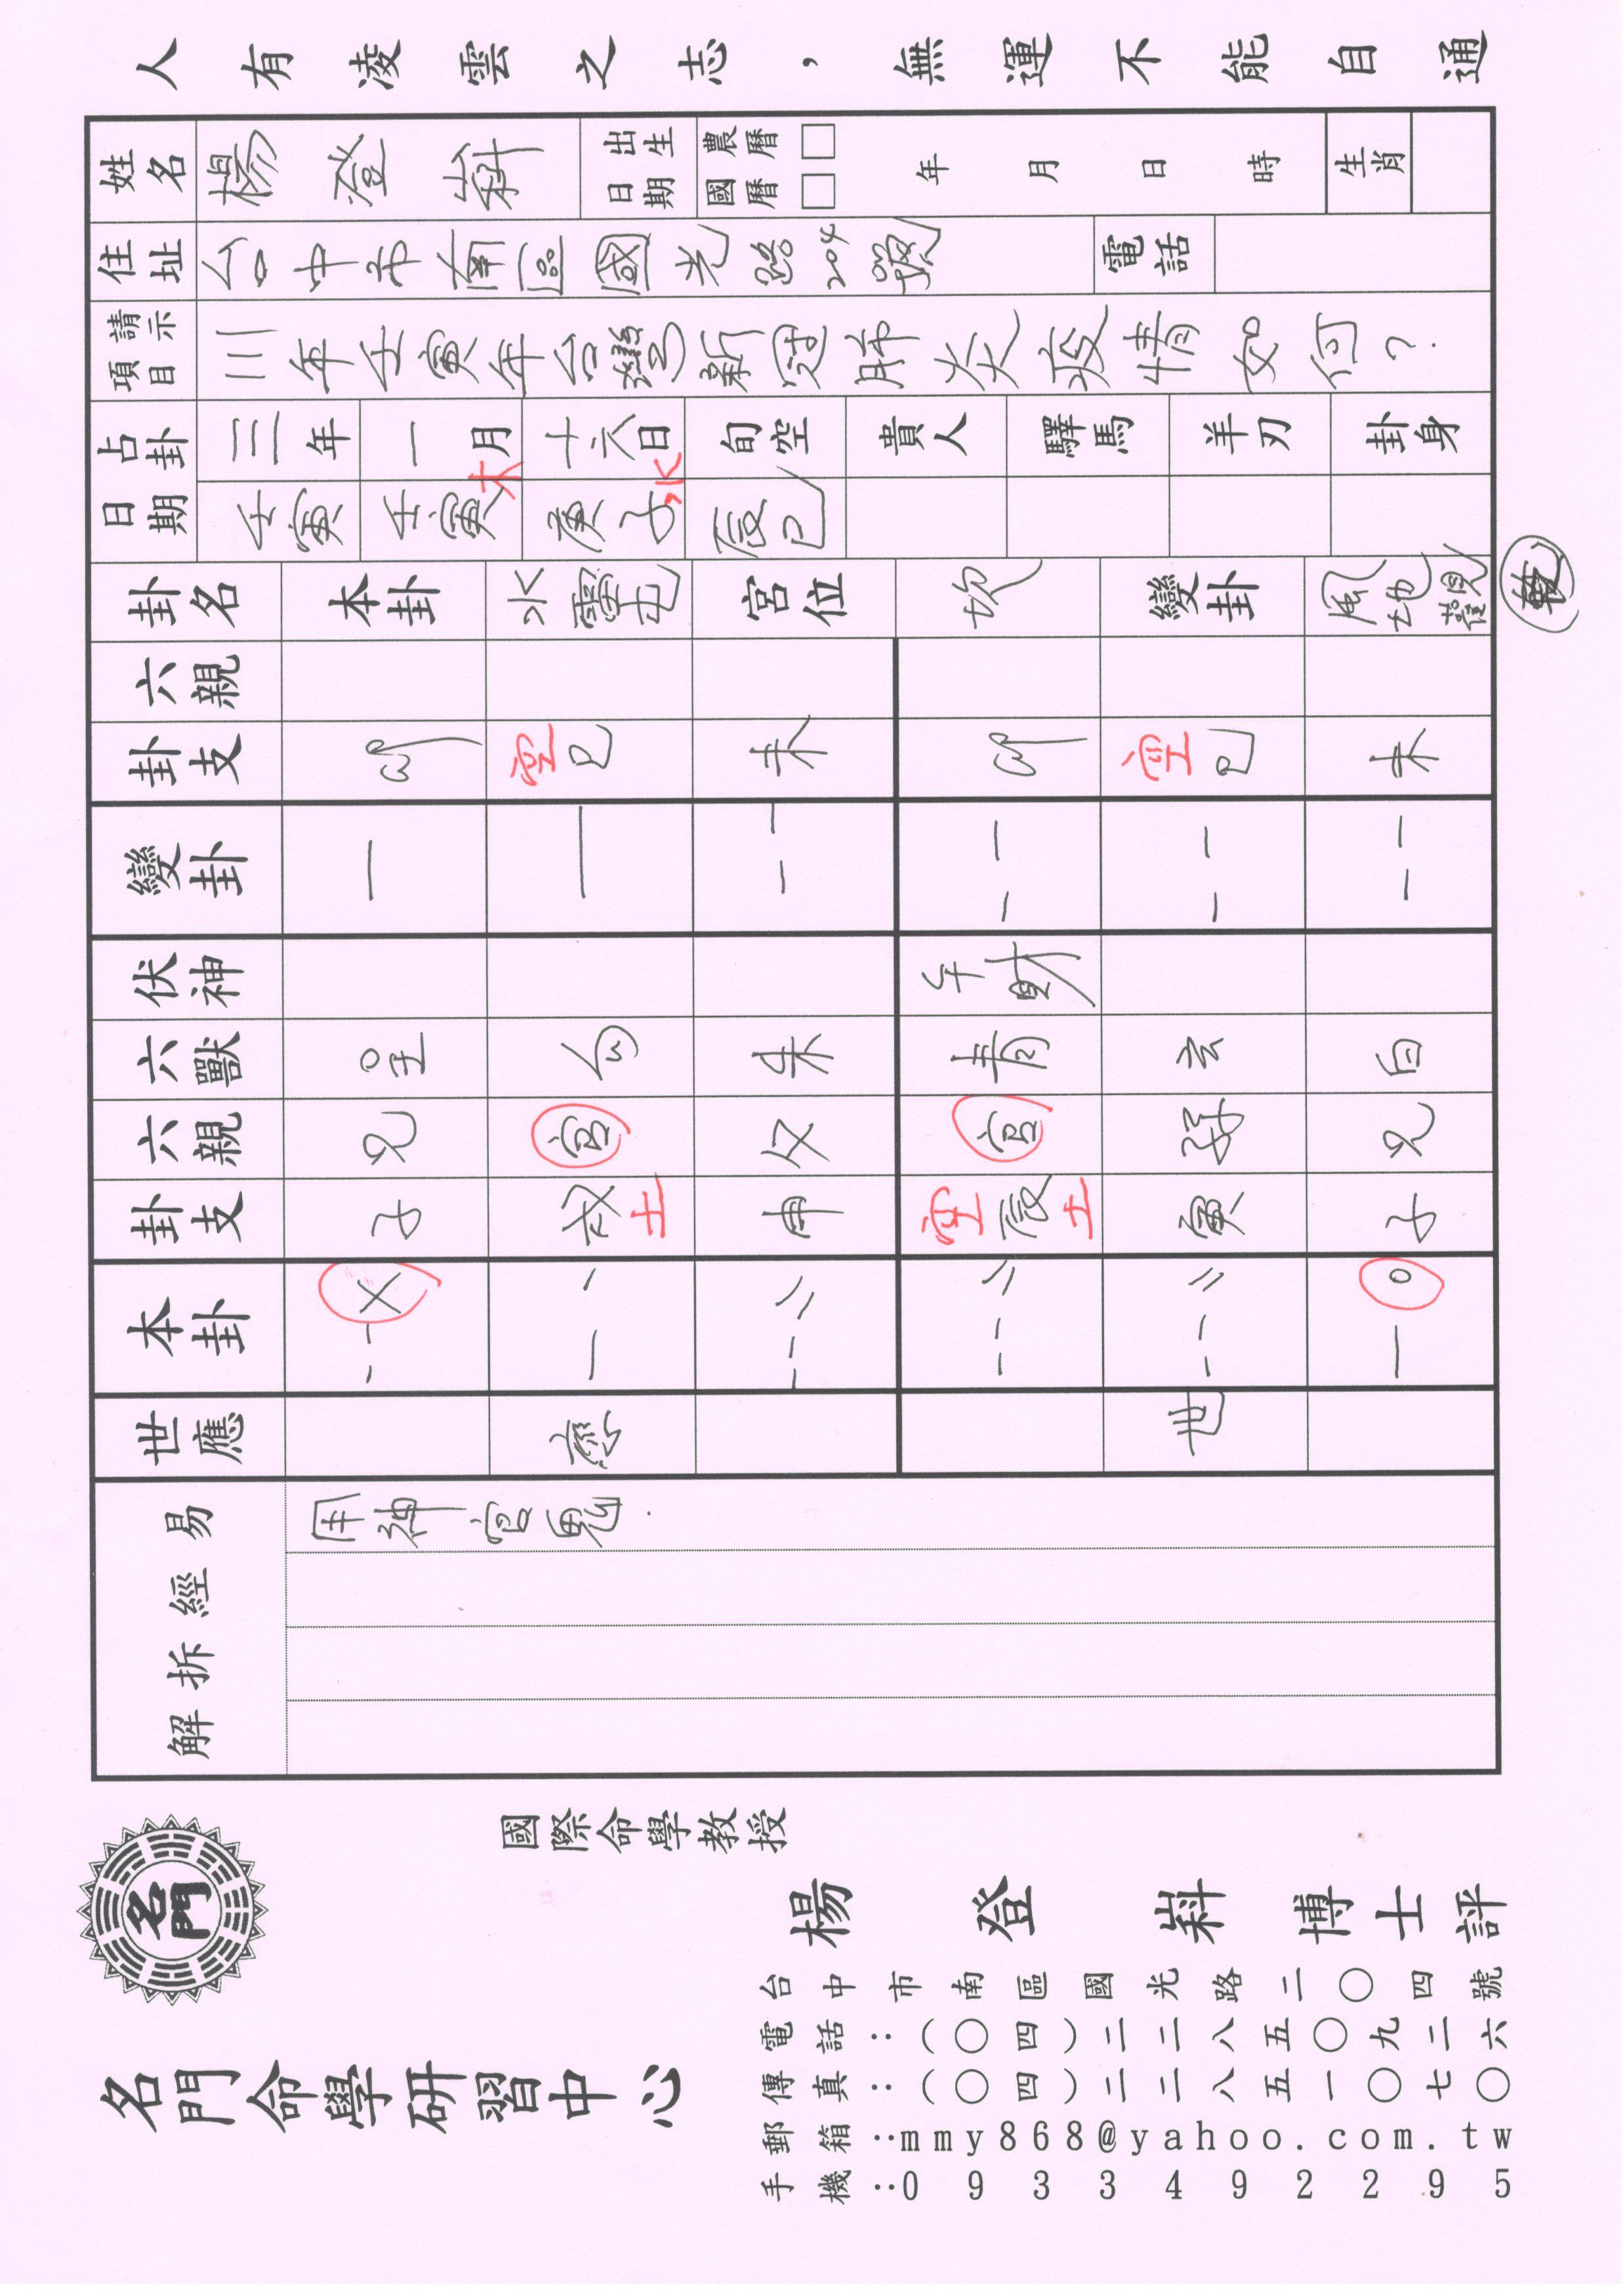 人有凌雲之志，無運不能自通
姓名 楊登嵙 出生日期 農曆□ 國曆□ 年 月 日 時 生肖
住址 台中市南區國光路204號 電話
請示項目 111年壬寅年台灣新冠肺炎疫情如何？
占卦日期 三年 一月 十六日 旬空 貴人 驛馬 羊刃 卦身
壬寅 壬寅木 庚子水 辰巳
卦名 本卦 水雷屯 宮位 坎 變卦 風地觀 乾
六親
卦支 卯 空巳 未 卯 空巳 未
變卦
伏神 午財
六獸 白 朱 青 玄 白
六親 兄 官 父 官 孫 兄
卦支 子 戌土 申 空辰土 寅 子
本卦
世應 應 世
解拆經易 用神官鬼.
名門
名門命學研習中心
國際命學教授
楊登嵙博士評
台中市南區國光路二○四號
電話：(○四)二二八五○九二六
傳真：(○四)二二八五一○七○
郵箱：mmy868@yahoo.com.tw
手機：0933492295